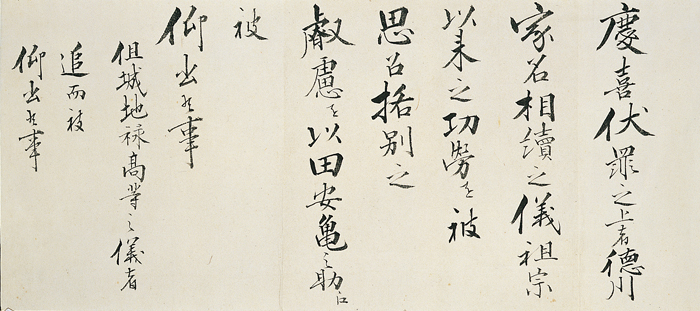 慶喜伏罪之上者徳川
家名相續之儀祖宗
以来之功勞を被
思召格別之
叡慮を以田安亀之助江
被
仰出候事
但城地禄高等之儀者
追而被
仰出候事